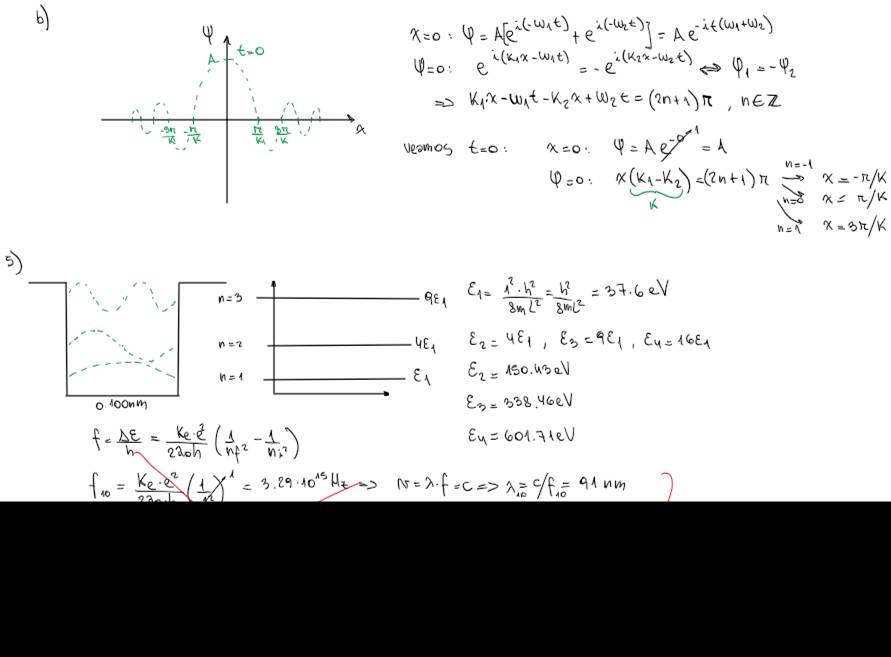 b)
φ
A
t=0
x
-3π/K -π/K π/K 3π/K
x=0: φ=A[e^{i(-ω₁t)}+e^{i(-ω₂t)}]=A e^{-it(ω₁+ω₂)}
φ=0: e^{i(K₁x-ω₁t)}=-e^{i(K₂x-ω₂t)} ⇔ φ₁=-φ₂
⇒ K₁x-ω₁t-K₂x+ω₂t=(2n+1)π, n∈ℤ
veamos t=0: x=0: φ=A e^{-0} 1 = 1
φ=0: x(K₁-K₂)=(2n+1)π
K
n=-1 x=-π/K
n=0 x=π/K
n=1 x=3π/K
5)
n=3 9ε₁
n=2 4ε₁
n=1 ε₁
0.100nm
ε₁=1²·h²/8mL²=h²/8mL²=37.6eV
ε₂=4ε₁, ε₃=9ε₁, ε₄=16ε₁
ε₂=150.43eV
ε₃=338.46eV
ε₄=601.71eV
f=Δε/h=Ke·e²/2a₀h (1/nf²-1/ni²)
f₁₀=Ke·e²/2a₀h (1/1²) 1 =3.29·10¹⁵Hz ⇒ v=λ·f=c ⇒ λ₁₀=c/f₁₀=91nm